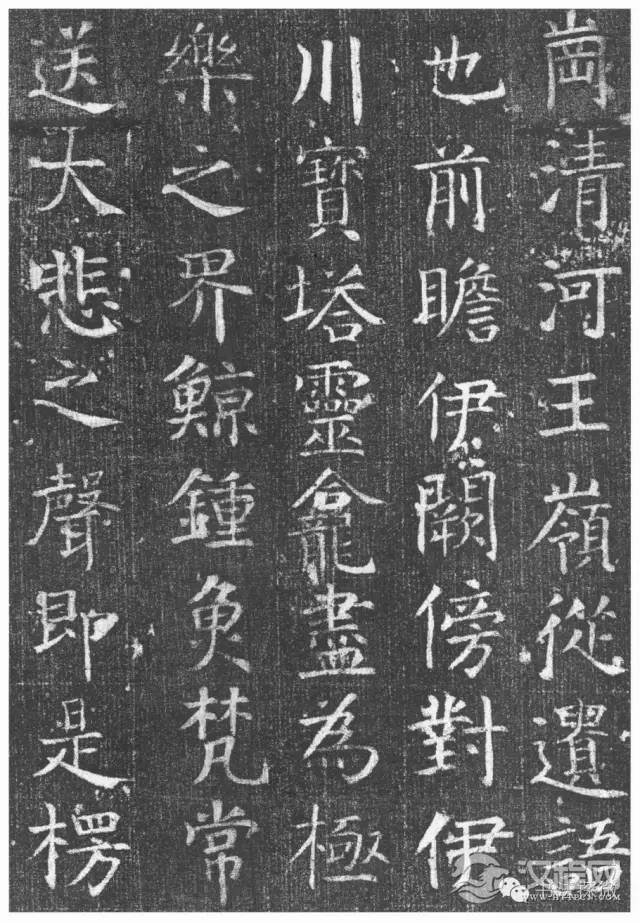 崗清河王嶺從遺語
也前瞻伊闕傍對伊
川寶塔靈龕盡為極
樂之界鯨鍾魚梵常
送大悲之聲即是楞
汉程网